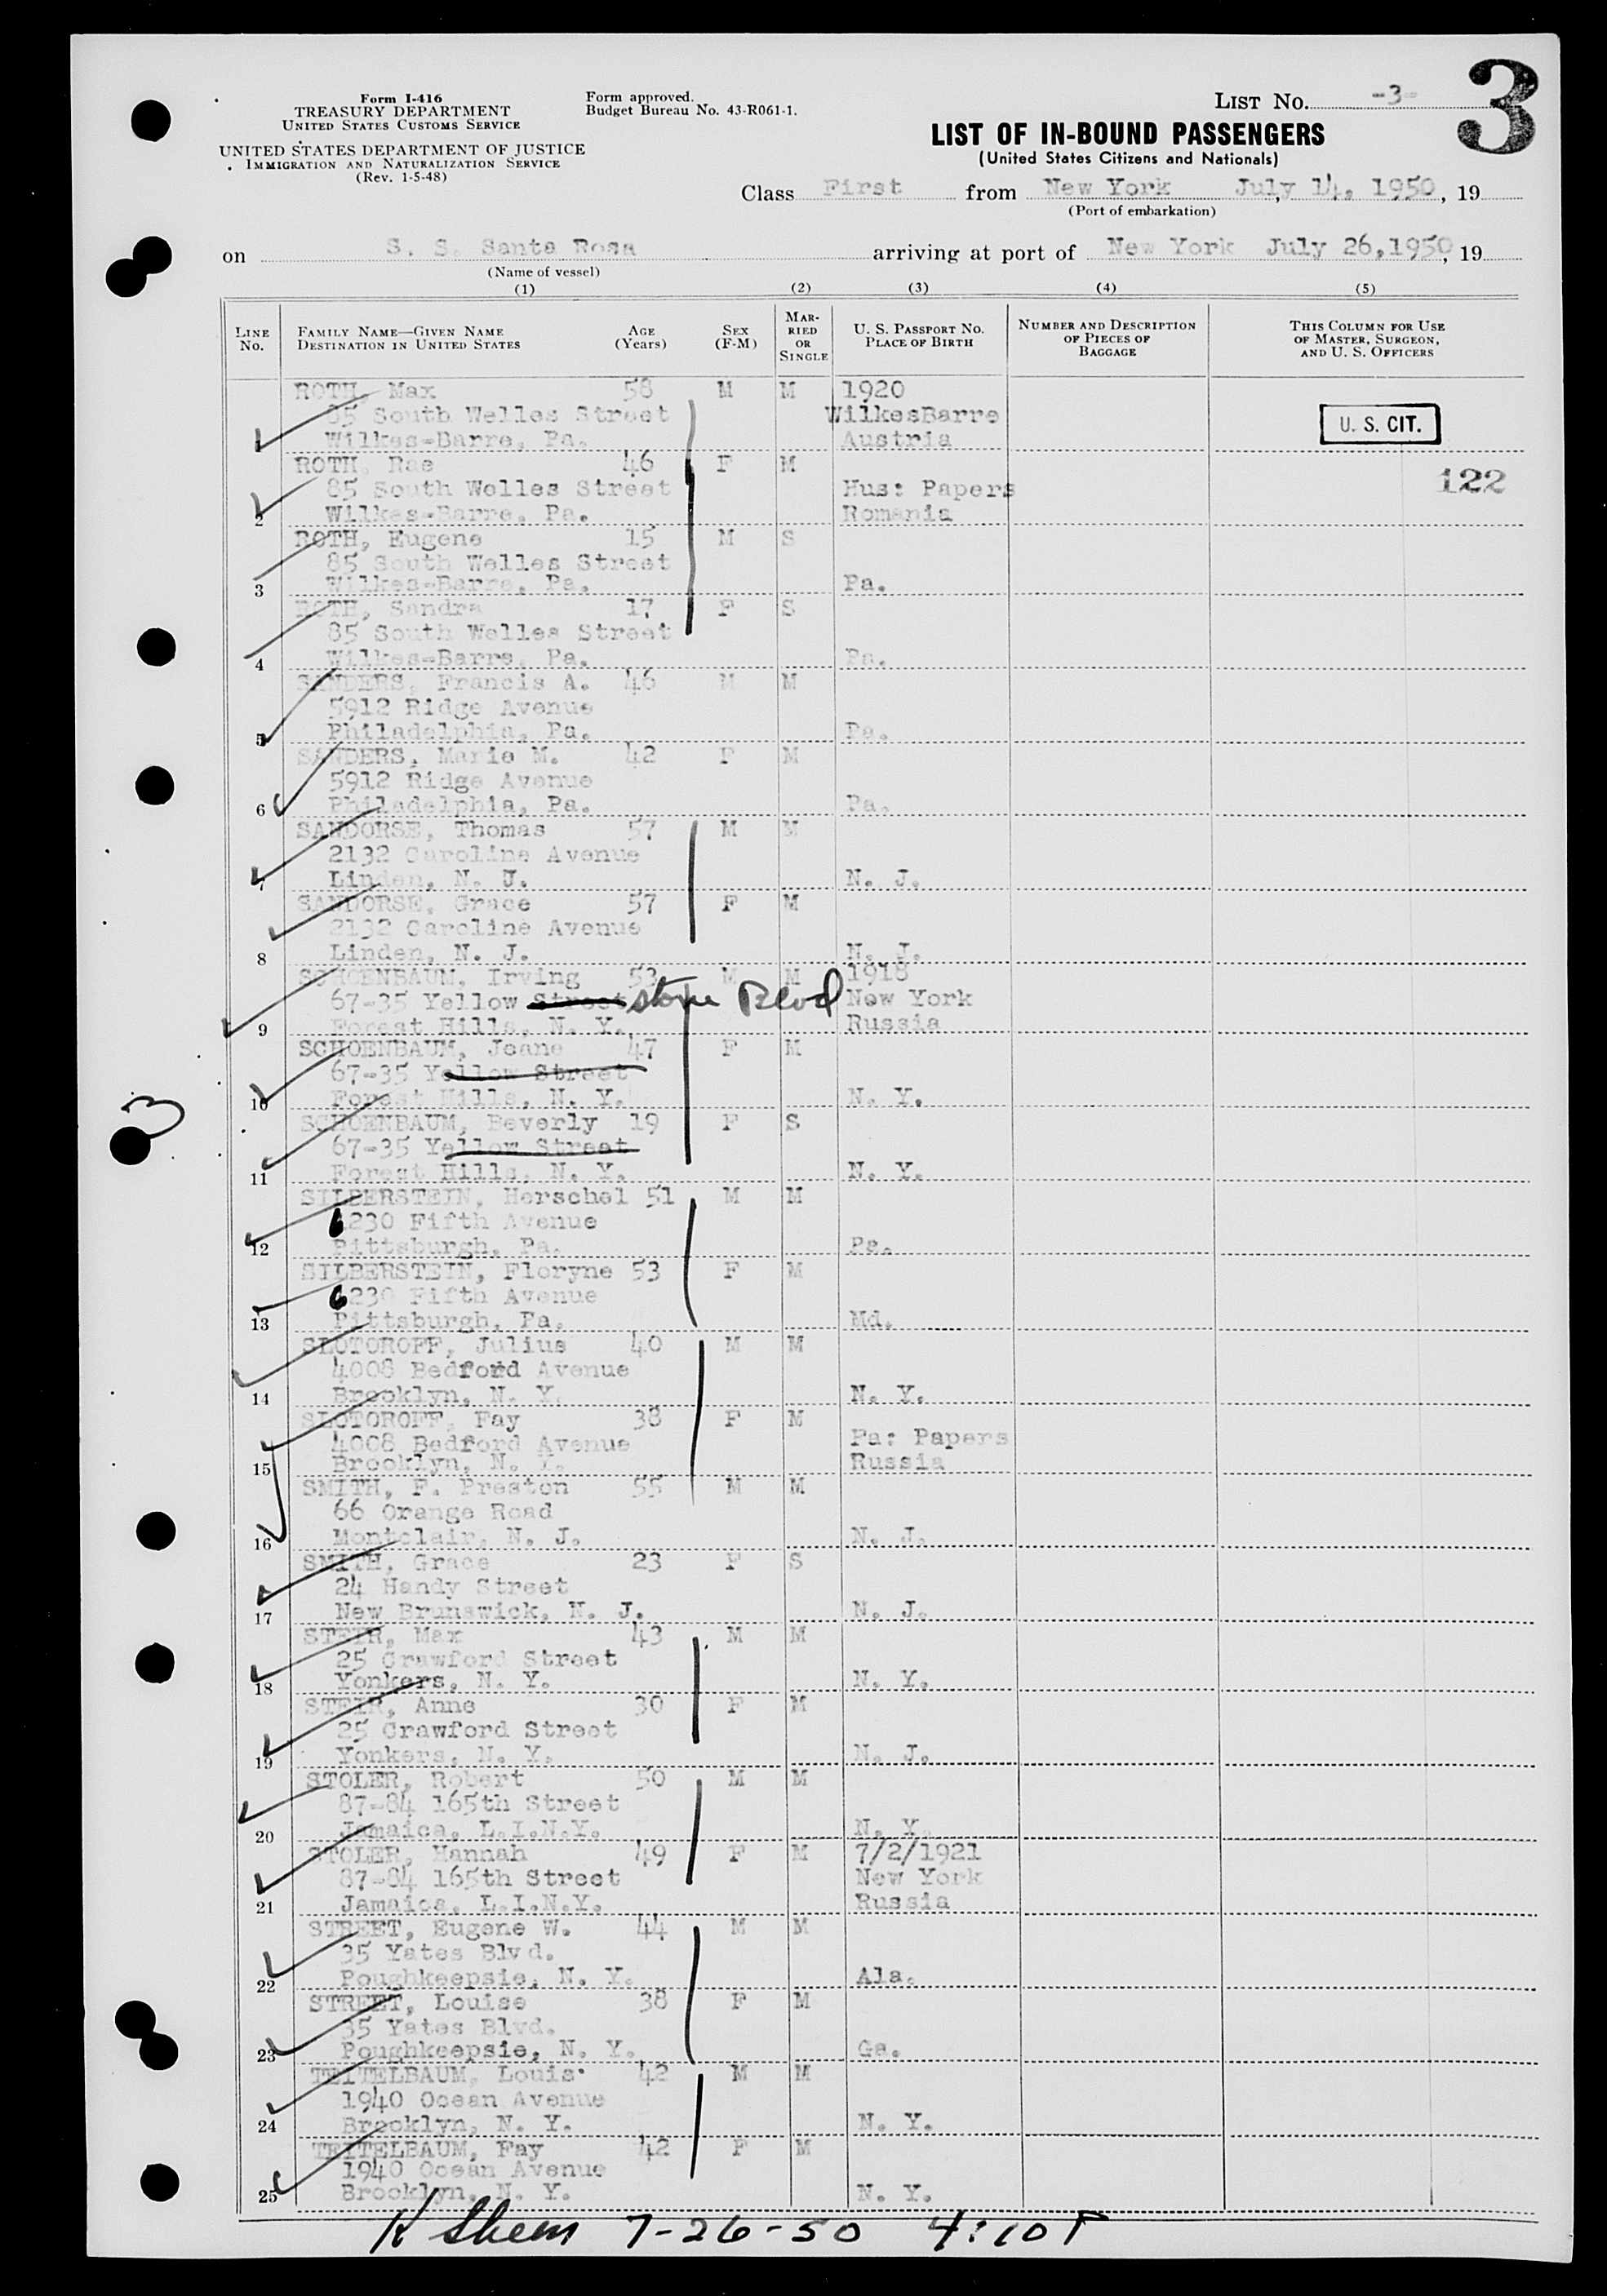 3
Form I-416
TREASURY DEPARTMENT
UNITED STATES CUSTOMS SERVICE
UNITED STATES DEPARTMENT OF JUSTICE
IMMIGRATION AND NATURALIZATION SERVICE
(Rev. 1-5-48)
Form approved.
Budget Bureau No. 43-R061-1.
LIST No. -3-
LIST OF IN-BOUND PASSENGERS
(United States Citizens and Nationals)
Class First from New York July 14, 1950, 19
(Port of embarkation)
on S. S. Santa Rosa arriving at port of New York July 26,1950, 19
(Name of vessel)
(1) (2) (3) (4) (5)
LINE No. FAMILY NAME—GIVEN NAME DESTINATION IN UNITED STATES AGE (Years) SEX (F-M) MARRIED OR SINGLE U. S. PASSPORT NO. PLACE OF BIRTH NUMBER AND DESCRIPTION OF PIECES OF BAGGAGE THIS COLUMN FOR USE OF MASTER, SURGEON, AND U. S. OFFICERS
ROTH, Max 58 M M 1920
85 South Welles Street WilkesBarre U. S. CIT.
Wilkes-Barre, Pa. Austria
ROTH, Rae 46 F M
85 South Welles Street Hus: Papers 122
2 Wilkes-Barre, Pa. Romania
ROTH, Eugene 15 M S
85 South Welles Street
3 Wilkes-Barre, Pa. Pa.
ROTH, Sandra 17 F S
85 South Welles Street
4 Wilkes-Barre, Pa. Pa.
SANDERS, Francis A. 46 M M
5912 Ridge Avenue
5 Philadelphia, Pa. Pa.
SANDERS, Marie M. 42 F M
5912 Ridge Avenue
6 Philadelphia, Pa. Pa.
SANDORSE, Thomas 57 M M
2132 Caroline Avenue
7 Linden, N. J. N. J.
SANDORSE, Grace 57 F M
2132 Caroline Avenue
8 Linden, N. J. N. J.
SCHOENBAUM, Irving 53 M M 1918
67-35 Yellow Street stone Blvd New York
9 Forest Hills, N. Y. Russia
SCHOENBAUM, Jeane 47 F M
67-35 Yellow Street
10 Forest Hills, N. Y. N. Y.
3
SCHOENBAUM, Beverly 19 F S
67-35 Yellow Street
11 Forest Hills, N. Y. N. Y.
SILBERSTEIN, Herschel 51 M M
6230 Fifth Avenue
12 Pittsburgh, Pa. Pa.
SILBERSTEIN, Floryne 53 F M
6230 Fifth Avenue
13 Pittsburgh, Pa. Md.
SLOTOROFF, Julius 40 M M
4008 Bedford Avenue
14 Brooklyn, N. Y. N. Y.
SLOTOROFF, Fay 38 F M
4008 Bedford Avenue Pa: Papers
15 Brooklyn, N. Y. Russia
SMITH, F. Preston 55 M M
66 Orange Road
16 Montclair, N. J. N. J.
SMITH, Grace 23 F S
24 Handy Street
17 New Brunswick, N. J. N. J.
STEIR, Max 43 M M
25 Crawford Street
18 Yonkers, N. Y. N. Y.
STEIR, Anne 30 F M
25 Crawford Street
19 Yonkers, N. Y. N. J.
STOLER, Robert 50 M M
87-84 165th Street
20 Jamaica, L.I.N.Y. N. Y.
STOLER, Hannah 49 F M 7/2/1921
87-84 165th Street New York
21 Jamaica, L.I.N.Y. Russia
STREET, Eugene W. 44 M M
35 Yates Blvd.
22 Poughkeepsie, N. Y. Ala.
STREET, Louise 38 F M
35 Yates Blvd.
23 Poughkeepsie, N. Y. Ga.
TEITELBAUM, Louis 42 M M
1940 Ocean Avenue
24 Brooklyn, N. Y. N. Y.
TEITELBAUM, Fay 42 F M
1940 Ocean Avenue
25 Brooklyn, N. Y. N. Y.
7-26-50 4:10 P